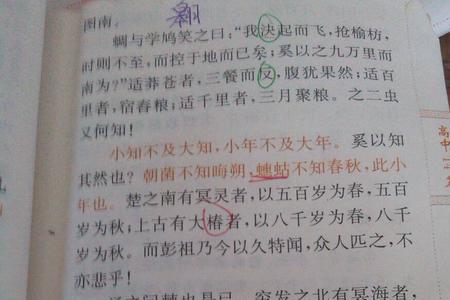 图南。
翱
蜩与学鸠笑之曰:“我决起而飞,抢榆枋,
时则不至,而控于地而已矣;奚以之九万里而
南为?”适莽苍者,三餐而反,腹犹果然;适百
里者,宿舂粮;适千里者,三月聚粮。之二虫
又何知!
小知不及大知,小年不及大年。奚以知
其然也?朝菌不知晦朔,蟪蛄不知春秋,此小
年也。楚之南有冥灵者,以五百岁为春,五百
岁为秋;上古有大椿者,以八千岁为春,八千
岁为秋。而彭祖乃今以久特闻,众人匹之,不
亦悲乎!
汤之问棘也是已。穷发之北有冥海者,
高
中